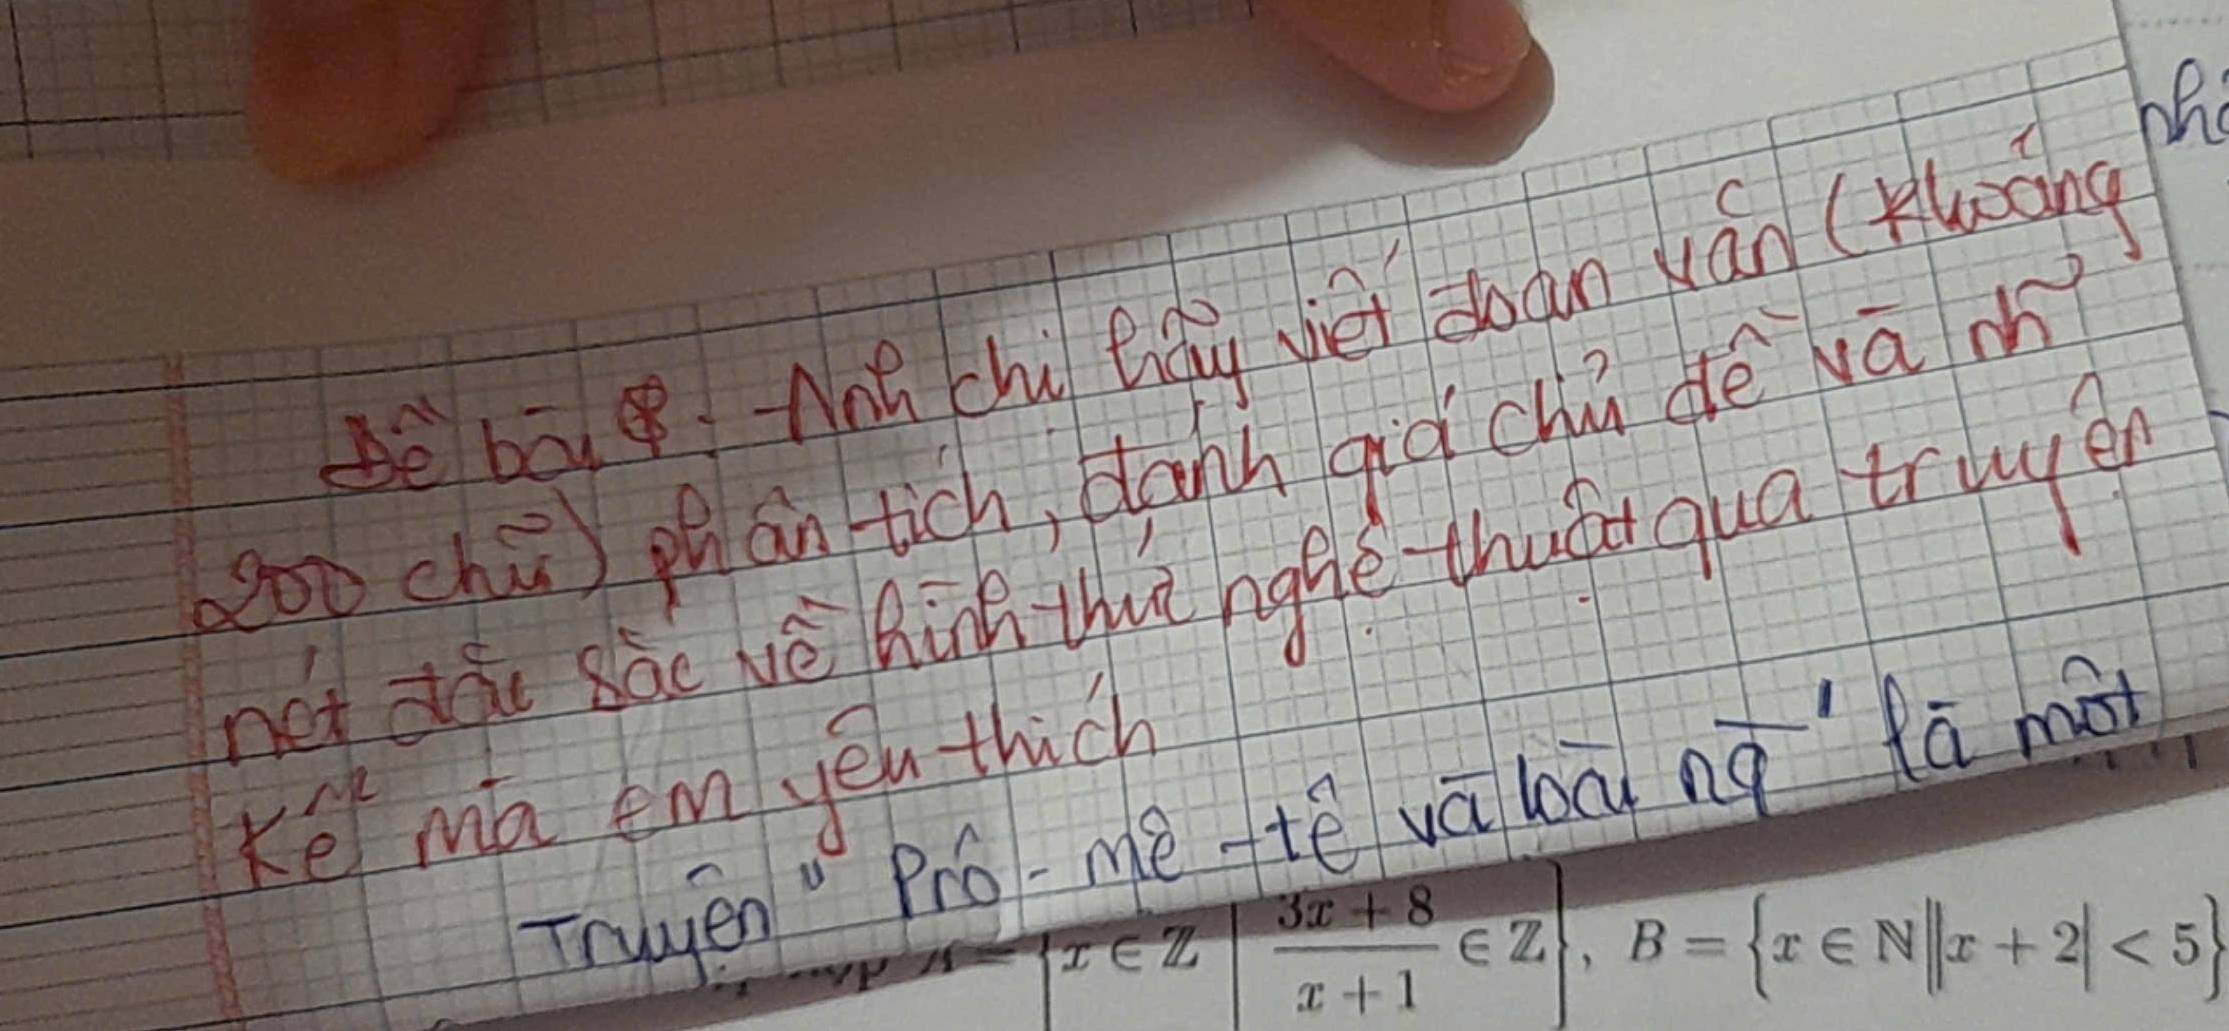 Đề bài: Anh chị hãy viết đoạn văn (khoảng
200 chữ) phân tích, đánh giá chủ đề và nh~
nét đặc sắc về hình thức nghệ thuật qua truyện
kể mà em yêu thích
Truyện "Prô-mê-tê và loài ng̅" là một
{x ∈ Z | 3x + 8 / x + 1 ∈ Z}, B = {x ∈ N||x + 2| < 5}